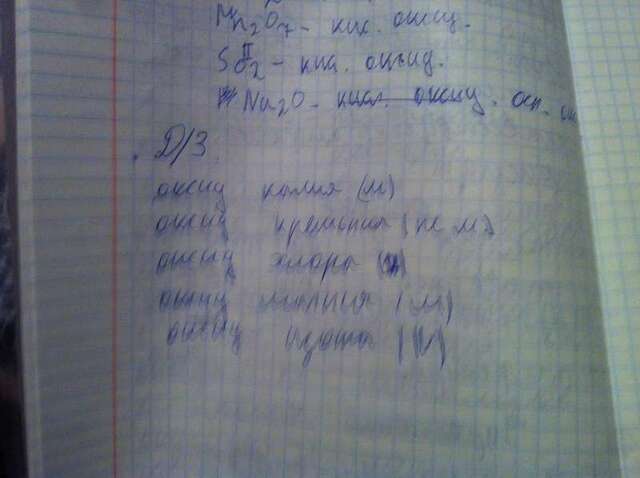 Mn2O7 - кис. оксид.
SO2 - кис. оксид. II
Na2O - кисл. оксид. осн.
Д/З
оксид калия (м)
оксид кремния (не м)
оксид хлора
оксид (м)
оксид азота